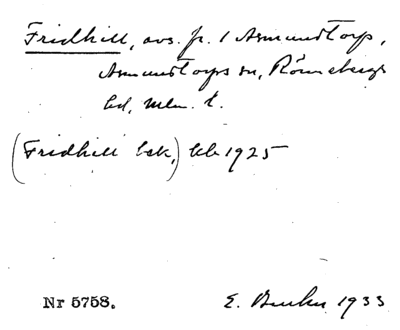 Fridhill, avs. fr. 1 Asmundtorp,
Asmundtorps sn, Rönnebergs
hd, Mlm. l.
(Fridhill bsk,) kb 1925
Nr 5758. E. 1933